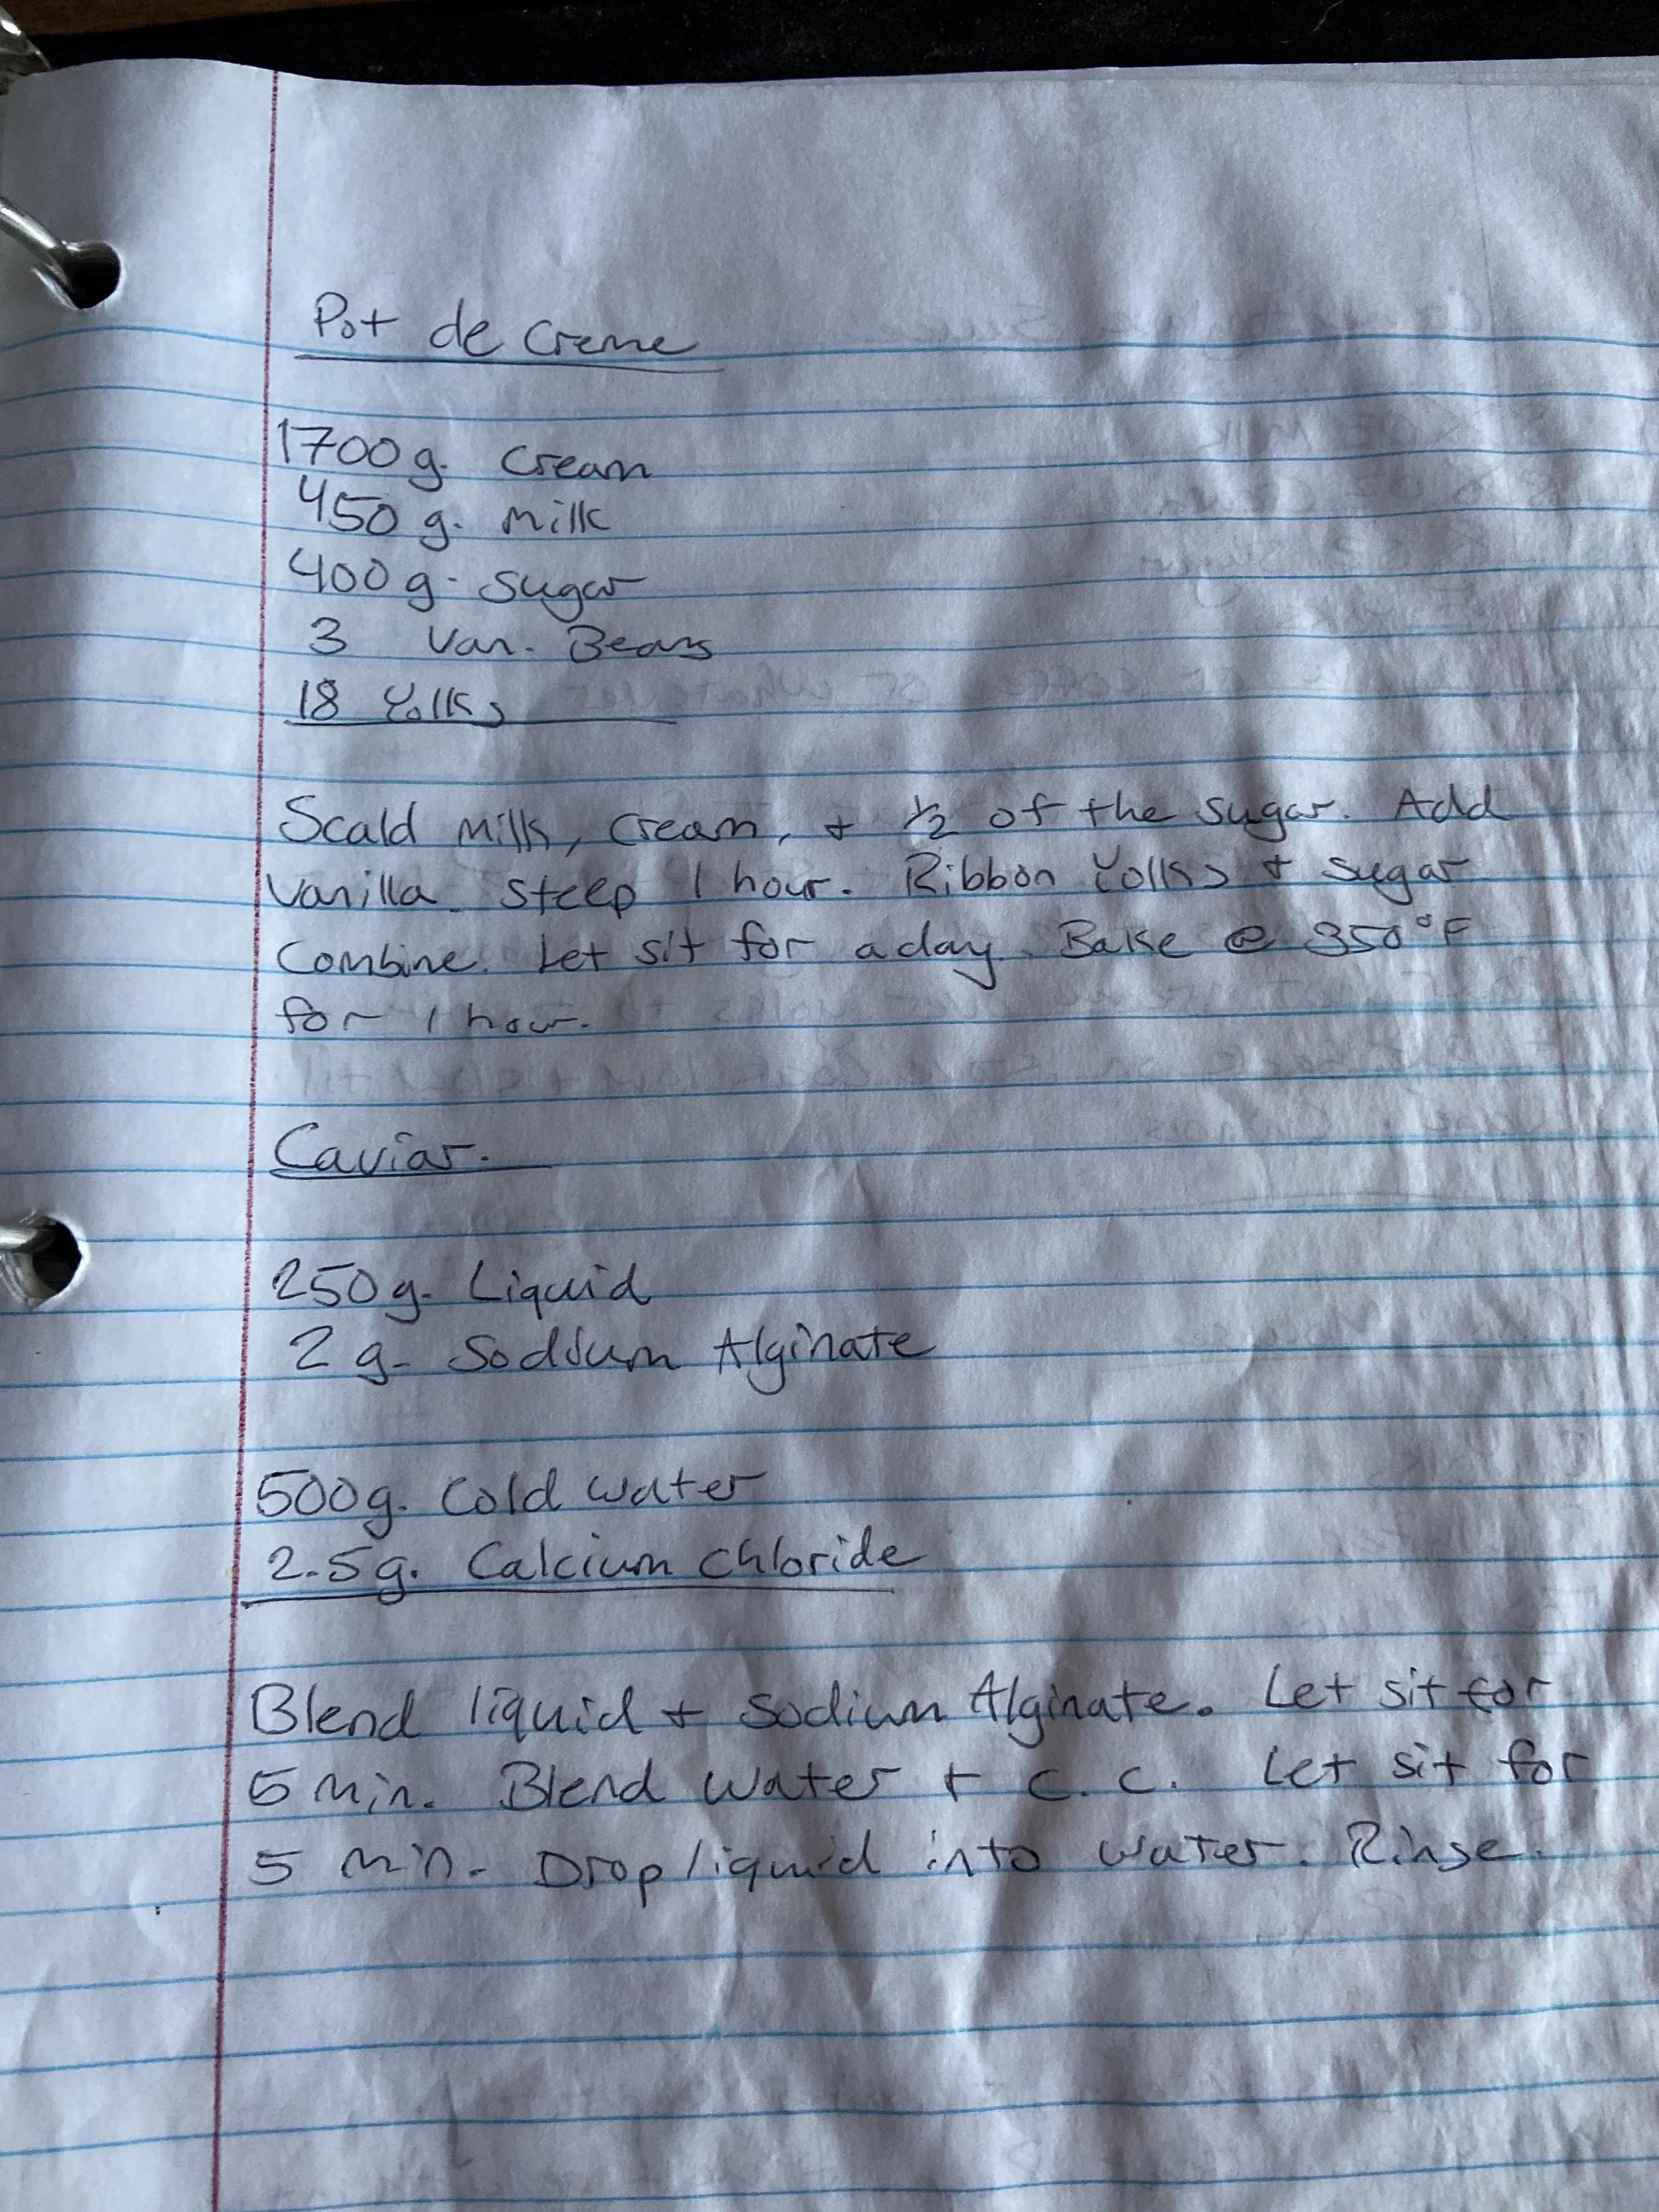 Pot de Creme
1700g. Cream
450 g. Milk
400g. Sugar
3 Van. Beans
18 Yolks
Scald Milk, Cream, + 1/2 of the sugar. Add
Vanilla. Steep 1 hour. Ribbon Yolks + sugar
Combine. Let sit for a day. Bake @ 350°F
for 1 hour.
Caviar.
250g. Liquid
2 g. Sodium Alginate
500g. Cold Water
2.5g. Calcium Chloride
Blend liquid + Sodium Alginate. Let sit for
5 Min. Blend Water + C.C. Let sit for
5 Min. Drop liquid into water. Rinse.